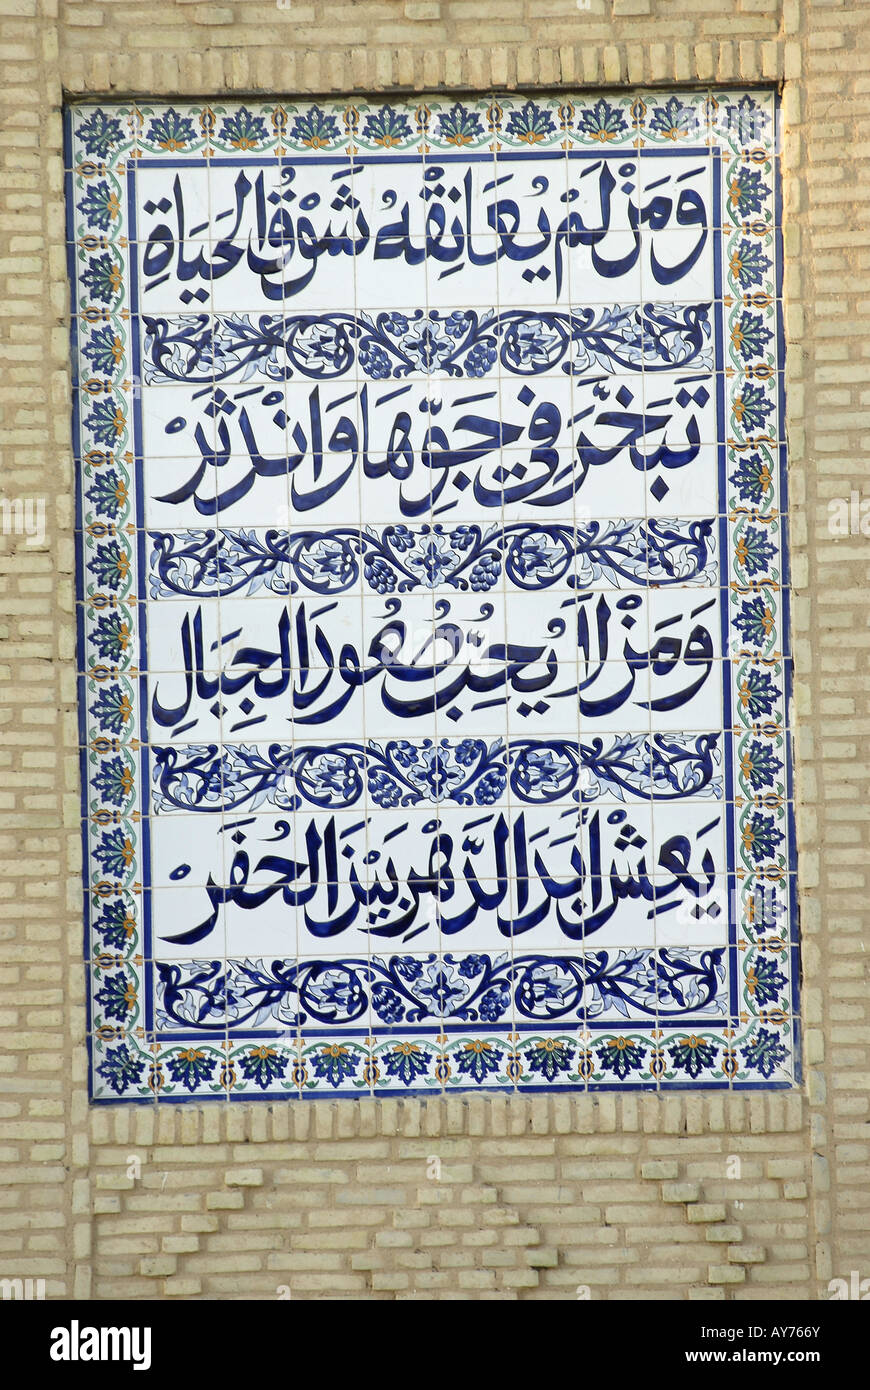 وَمَنْ لَمْ يُعَانِقْهُ شَوْقُ الحَيَاةِ
تَبَخَّرَ فِي جَوِّهَا وَانْدَثَرْ
وَمَنْ لاَ يُحِبُّ صُعُودَ الجِبَالِ
يَعِشْ أَبَدَ الدَّهْرِ بَيْنَ الحُفَرْ
alamy
Image ID: AY766Y
www.alamy.com